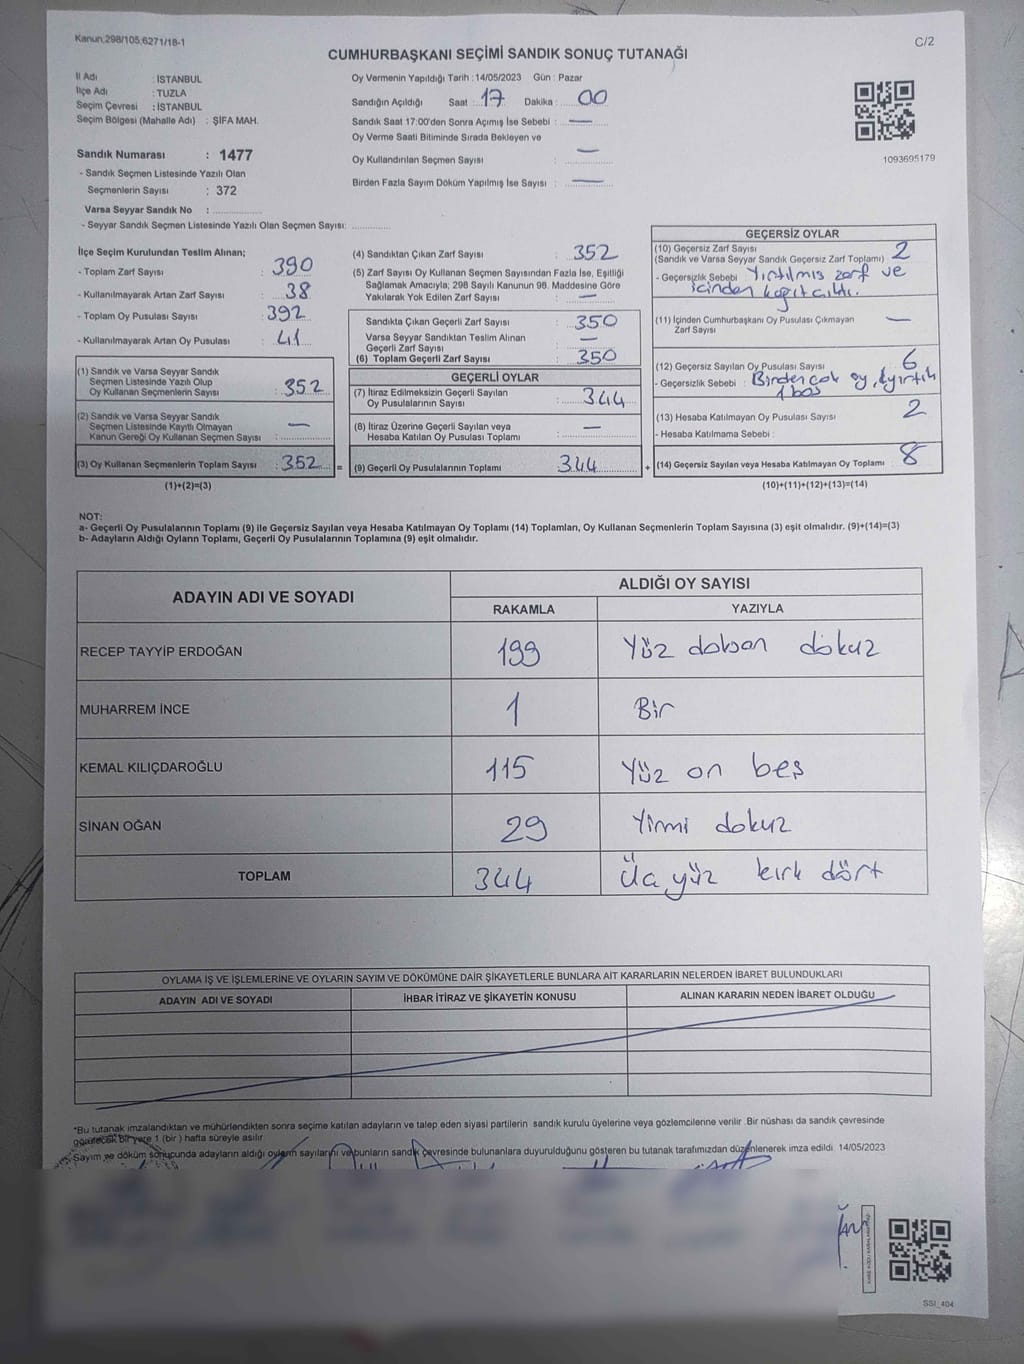 Kanun:298/105,6271/18-1
C/2
CUMHURBAŞKANI SEÇİMİ SANDIK SONUÇ TUTANAĞI
İl Adı : İSTANBUL
İlçe Adı : TUZLA
Seçim Çevresi : İSTANBUL
Seçim Bölgesi (Mahalle Adı) : ŞİFA MAH.
Sandık Numarası : 1477
- Sandık Seçmen Listesinde Yazılı Olan
Seçmenlerin Sayısı : 372
Varsa Seyyar Sandık No :
- Seyyar Sandık Seçmen Listesinde Yazılı Olan Seçmen Sayısı:
Oy Vermenin Yapıldığı Tarih : 14/05/2023 Gün : Pazar
Sandığın Açıldığı Saat : 17 Dakika : 00
Sandık Saat 17:00'den Sonra Açımış İse Sebebi : —
Oy Verme Saati Bitiminde Sırada Bekleyen ve
Oy Kullandırılan Seçmen Sayısı : —
Birden Fazla Sayım Döküm Yapılmış İse Sayısı : —
1093695179
İlçe Seçim Kurulundan Teslim Alınan;
- Toplam Zarf Sayısı : 390
- Kullanılmayarak Artan Zarf Sayısı : 38
- Toplam Oy Pusulası Sayısı : 392
- Kullanılmayarak Artan Oy Pusulası : 41
(1) Sandık ve Varsa Seyyar Sandık
Seçmen Listesinde Yazılı Olup
Oy Kullanan Seçmenlerin Sayısı : 352
(2) Sandık ve Varsa Seyyar Sandık
Seçmen Listesinde Kayıtlı Olmayan
Kanun Gereği Oy Kullanan Seçmen Sayısı : —
(3) Oy Kullanan Seçmenlerin Toplam Sayısı : 352
(1)+(2)=(3)
(4) Sandıktan Çıkan Zarf Sayısı : 352
(5) Zarf Sayısı Oy Kullanan Seçmen Sayısından Fazla İse, Eşitliği
Sağlamak Amacıyla; 298 Sayılı Kanunun 98. Maddesine Göre
Yakılarak Yok Edilen Zarf Sayısı : —
Sandıkta Çıkan Geçerli Zarf Sayısı : 350
Varsa Seyyar Sandıktan Teslim Alınan
Geçerli Zarf Sayısı : —
(6) Toplam Geçerli Zarf Sayısı : 350
GEÇERLİ OYLAR
(7) İtiraz Edilmeksizin Geçerli Sayılan
Oy Pusulalarının Sayısı : 344
(8) İtiraz Üzerine Geçerli Sayılan veya
Hesaba Katılan Oy Pusulası Toplamı : —
= (9) Geçerli Oy Pusulalarının Toplamı 344
GEÇERSİZ OYLAR
(10) Geçersiz Zarf Sayısı 2
(Sandık ve Varsa Seyyar Sandık Geçersiz Zarf Toplamı)
- Geçersizlik Sebebi : Yırtılmış zarf ve
içinden kağıt çıktı.
(11) İçinden Cumhurbaşkanı Oy Pusulası Çıkmayan —
Zarf Sayısı
(12) Geçersiz Sayılan Oy Pusulası Sayısı : 6
- Geçersizlik Sebebi : Birden çok oy,
1 boş
(13) Hesaba Katılmayan Oy Pusulası Sayısı : 2
- Hesaba Katılmama Sebebi :
+ (14) Geçersiz Sayılan veya Hesaba Katılmayan Oy Toplamı : 8
(10)+(11)+(12)+(13)=(14)
NOT:
a- Geçerli Oy Pusulalarının Toplamı (9) ile Geçersiz Sayılan veya Hesaba Katılmayan Oy Toplamı (14) Toplamları, Oy Kullanan Seçmenlerin Toplam Sayısına (3) eşit olmalıdır. (9)+(14)=(3)
b- Adayların Aldığı Oyların Toplamı, Geçerli Oy Pusulalarının Toplamına (9) eşit olmalıdır.
ADAYIN ADI VE SOYADI
ALDIĞI OY SAYISI
RAKAMLA YAZIYLA
RECEP TAYYİP ERDOĞAN 199 Yüz doksan dokuz
MUHARREM İNCE 1 Bir
KEMAL KILIÇDAROĞLU 115 Yüz on beş
SİNAN OĞAN 29 Yirmi dokuz
TOPLAM 344 Üç yüz kırk dört
OYLAMA İŞ VE İŞLEMLERİNE VE OYLARIN SAYIM VE DÖKÜMÜNE DAİR ŞİKAYETLERLE BUNLARA AİT KARARLARIN NELERDEN İBARET BULUNDUKLARI
ADAYIN ADI VE SOYADI İHBAR İTİRAZ VE ŞİKAYETİN KONUSU ALINAN KARARIN NEDEN İBARET OLDUĞU
*Bu tutanak imzalandıktan ve mühürlendikten sonra seçime katılan adayların ve talep eden siyasi partilerin sandık kurulu üyelerine veya gözlemcilerine verilir. Bir nüshası da sandık çevresinde
görülecek bir yere 1 (bir) hafta süreyle asılır
Sayım ve döküm sonucunda adayların aldığı oyların sayılarını ve bunların sandık çevresinde bulunanlara duyurulduğunu gösteren bu tutanak tarafımızdan düzenlenerek imza edildi. 14/05/2023
SSI_404